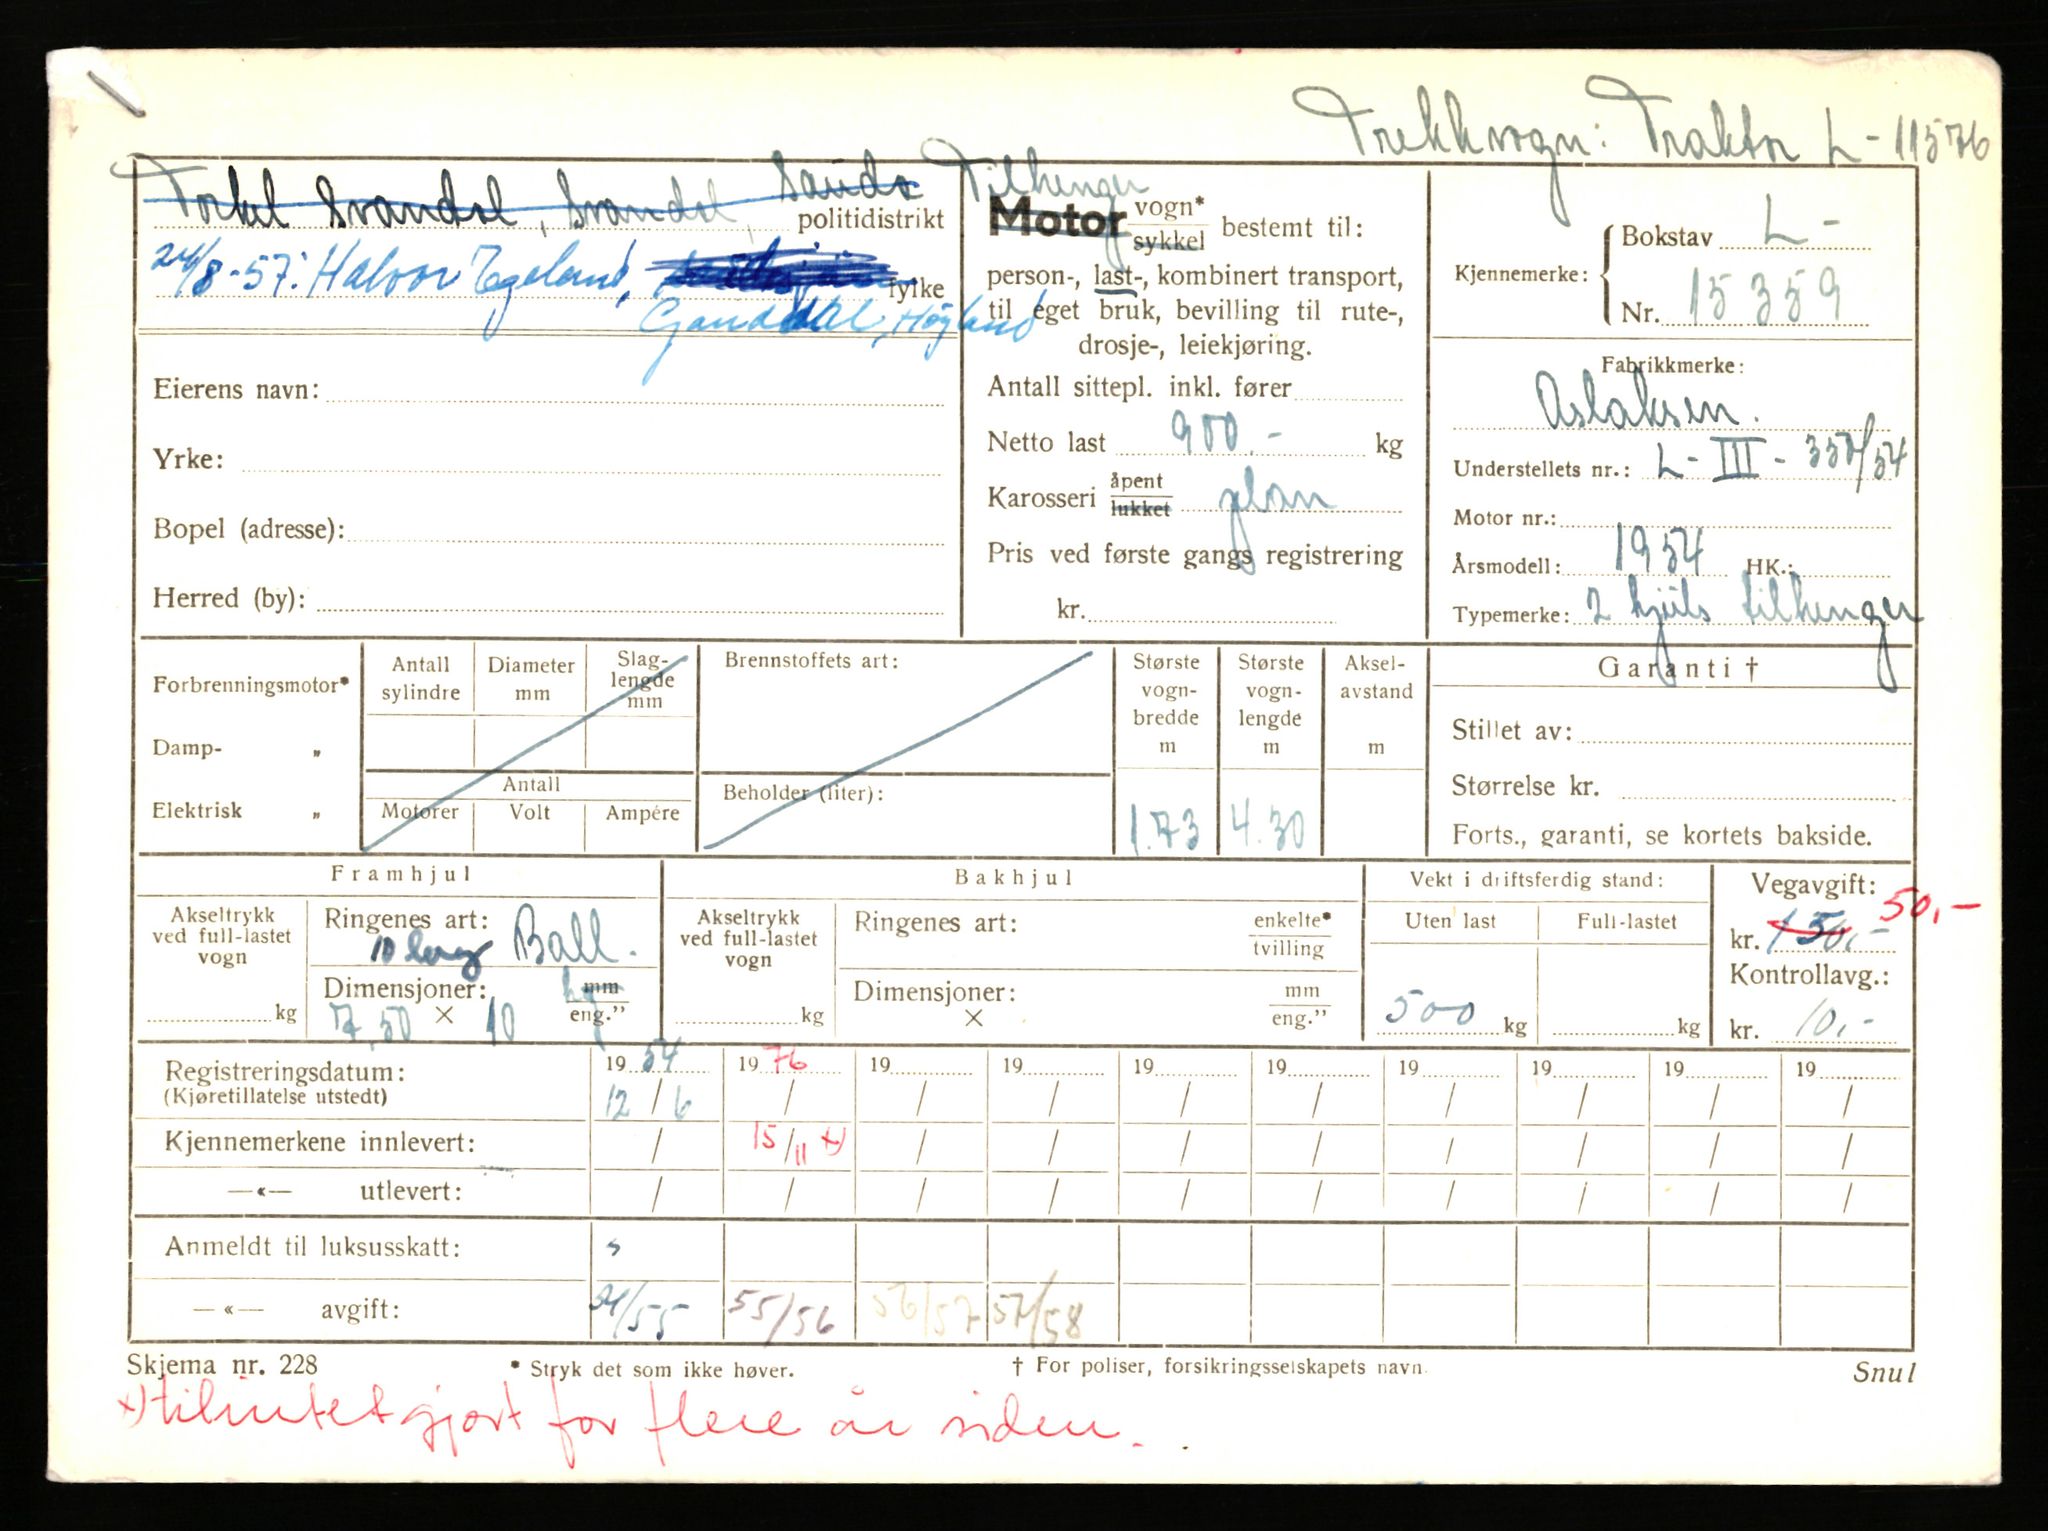 Trekkvogn: Traktor L-11576
Torkel Svandal, Svandal, Sauda politidistrikt
24/8-57: Halvor Egeland, fylke
Ganddal, Høyland
Eierens navn:
Yrke:
Bopel (adresse):
Herred (by):
Tilhenger
Motor vogn* sykkel bestemt til:
person-, last-, kombinert transport,
til eget bruk, bevilling til rute-,
drosje-, leiekjøring.
Antall sittepl. inkl. fører
Netto last 900.- kg
Karosseri åpent lukket plan
Pris ved første gangs registrering
kr.
Kjennemerke: Bokstav L-
Nr. 15359
Fabrikkmerke:
Aslaksen.
Understellets nr.: L-III-337/54
Motor nr.:
Årsmodell: 1954 HK.:
Typemerke: 2 hjuls tilhenger
Forbrenningsmotor*
Damp- „
Elektrisk „
Antall sylindre
Diameter mm
Slag-lengde mm
Antall
Motorer Volt Ampére
Brennstoffets art:
Beholder (liter):
Største vogn-bredde m
1.73
Største vogn-lengde m
4.30
Aksel-avstand m
Garanti †
Stillet av:
Størrelse kr.
Forts., garanti, se kortets bakside.
Framhjul
Akseltrykk ved full-lastet vogn
kg
Ringenes art: 10 lag Ball.
Dimensjoner: mm eng.”
7,50 × 10
Bakhjul
Akseltrykk ved full-lastet vogn
kg
Ringenes art: enkelte* tvilling
Dimensjoner: mm eng.”
×
Vekt i driftsferdig stand:
Uten last Full-lastet
500 kg kg
Vegavgift:
kr. 150,- 50,-
Kontrollavg.:
kr. 10,-
Registreringsdatum: 19 54 19 76 19 19 19 19 19 19 19 19
(Kjøretillatelse utstedt) 12/6 / / / / / / / / /
Kjennemerkene innlevert: / 15/11 x) / / / / / / / /
—«— utlevert: / / / / / / / / / /
Anmeldt til luksusskatt:
—«— avgift: 54/55 55/56 56/57 57/58
Skjema nr. 228 * Stryk det som ikke høver. † For poliser, forsikringsselskapets navn. Snul
x) tilintetgjort for flere år siden.